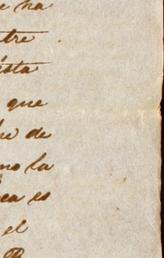 ha
tre
ésta
que
de
mo la
ca es
el